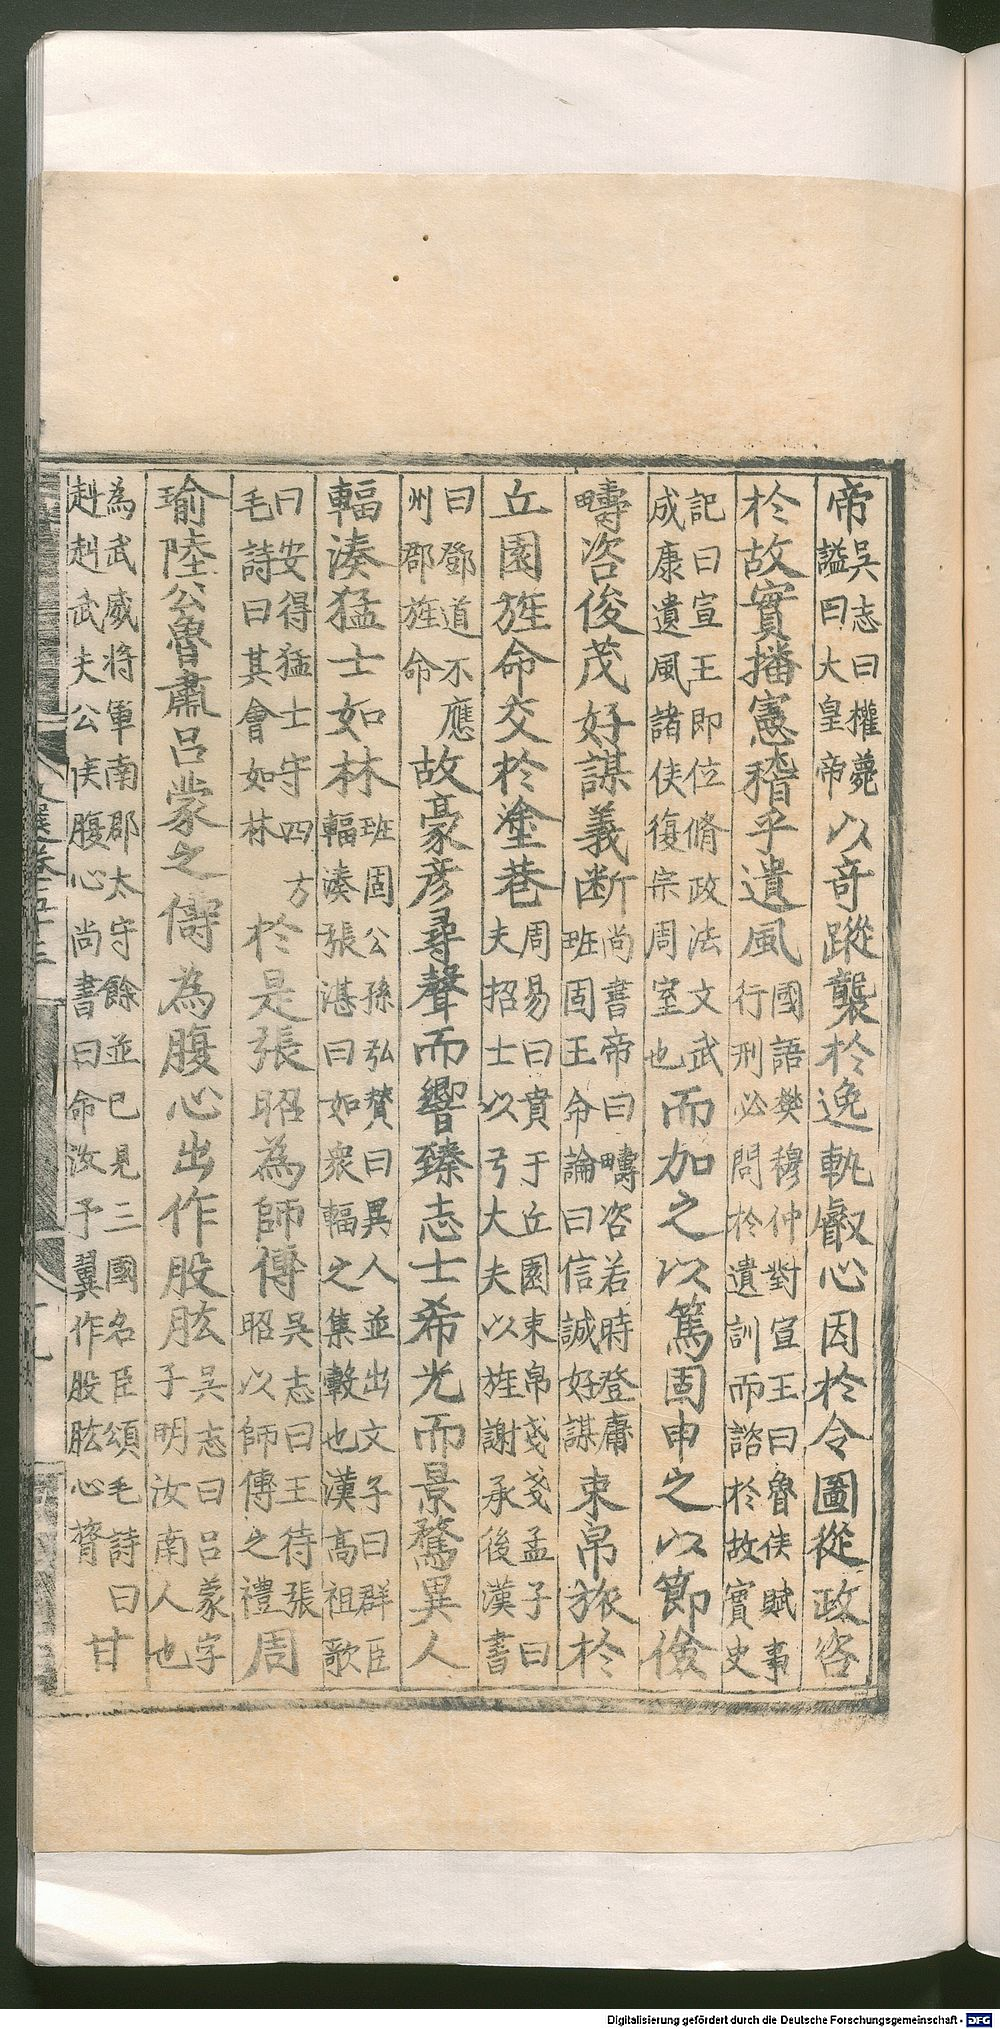 帝吳志曰權薨謚曰大皇帝以奇蹤襲扵逸軌叡心因扵令圖從政咨
扵故實播憲稽乎遺風國語樊穆仲對宣王曰魯侯賦事行刑必問扵遺訓而諮扵故實史
記曰宣王即位脩政法文武成康遺風諸侯復宗周室也而加之以篤固申之以節儉
疇咨俊茂好謀義断尚書帝曰疇咨若時登庸班固王命論曰信誠好謀束帛旅扵
丘園旌命交扵塗巷周易曰賁于丘園束帛戔戔孟子曰夫招士以弓大夫以旌謝承後漢書
曰鄧道不應州郡旌命故豪彦尋聲而響臻志士希光而景騖異人
輻湊猛士如林班固公孫弘賛曰異人並出文子曰群臣輻湊張湛曰如衆輻之集轂也漢高祖歌
曰安得猛士守四方毛詩曰其會如林扵是張昭為師傅吳志曰王待張昭以師傅之禮周
瑜陸公魯肅呂蒙之儔為腹心出作股肱吳志曰呂蒙字子明汝南人也
為武威将軍南郡太守餘並已見三國名臣頌毛詩曰赳赳武夫公侯腹心尚書曰命汝予翼作股肱心膂甘
Digitalisierung gefördert durch die Deutsche Forschungsgemeinschaft - DFG